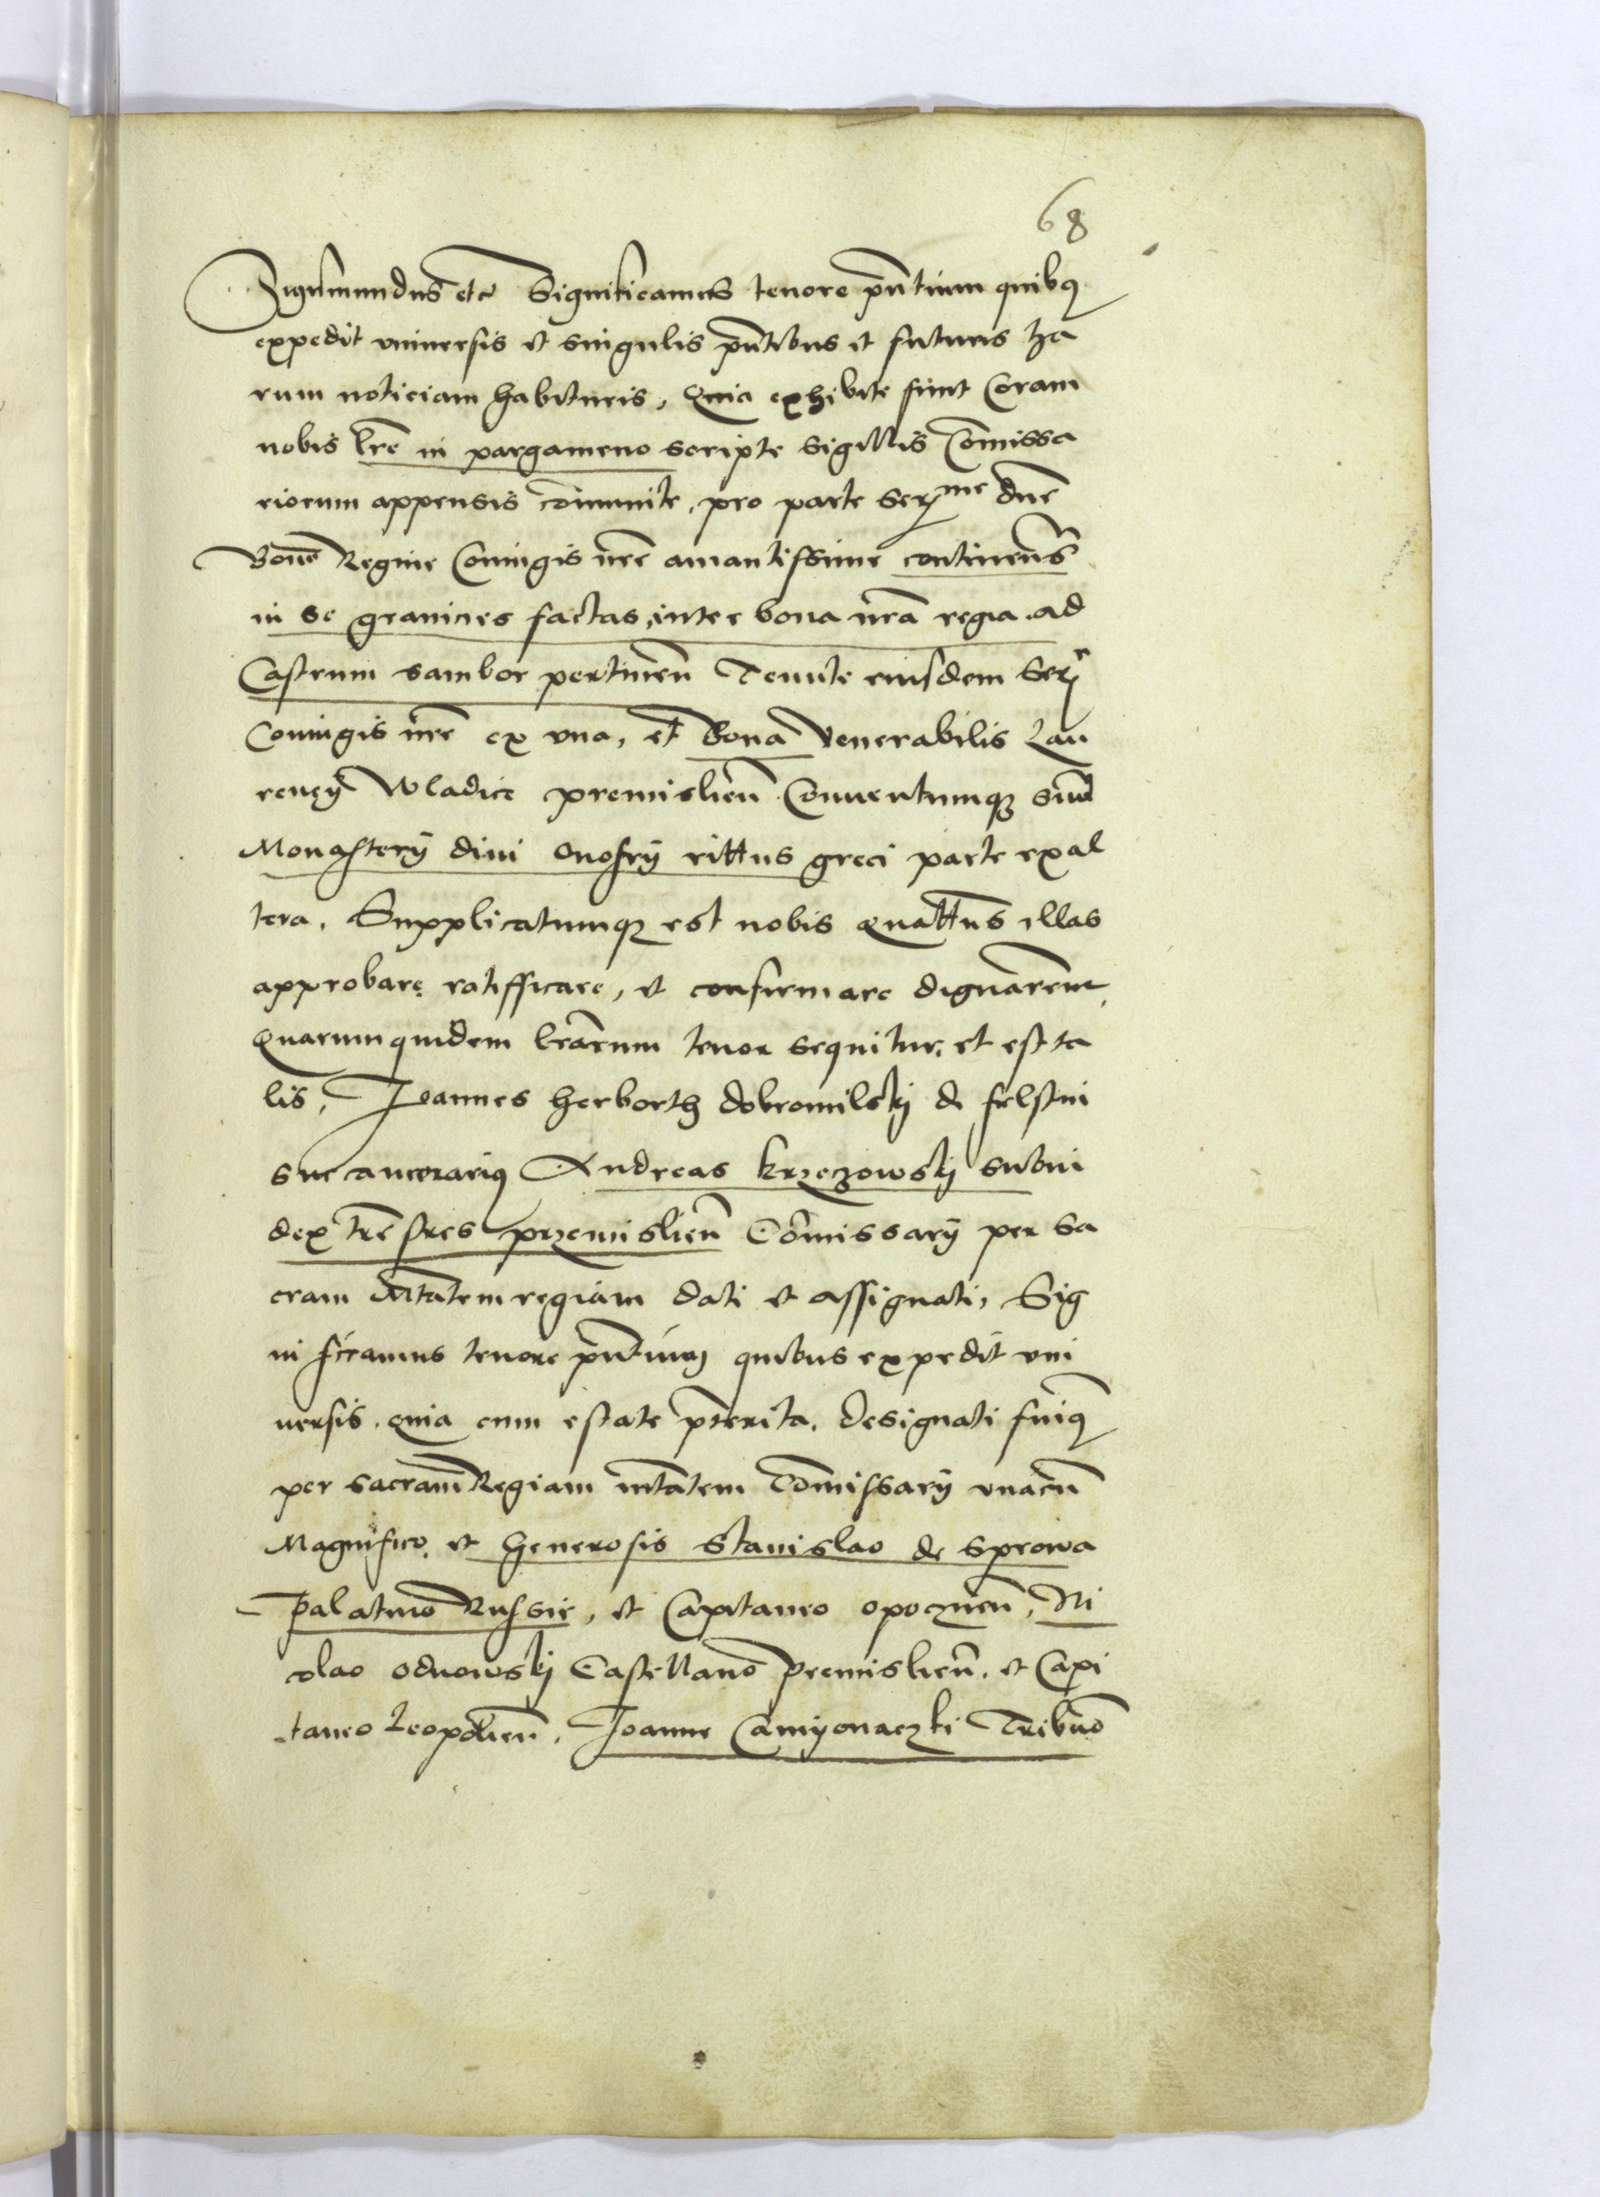 68
Sigismundus etc Significamus tenore pn̄tium quibq
expedit vniuersis et singulis pn̄tibus et futuris ha
rum noticiam habituris, Quia exhibite sunt Coram
nobis lr̄e in pargameno scripte sigillis Com̄issa
riorum appensis com̄unite, pro parte Serme dn̄e
Bone Regine Coniugis nr̄e amantissime continen̄s
in se granicies factas, inter bona nr̄a regia ad
Castrum sambor pertinen̄ Tenute eiusdem Ser
Coniugis nr̄e ex vna, et Bona Venerabilis Lau
rencÿ Wladice premislien̄ Conuentumqȝ siue
Monasterÿ diui Onofrÿ rittus greci parte ex al
tera, Supplicatumqȝ est nobis quatt̄us illas
approbare ratifficare, et confirmare dignaremr,
Quarumquidem lr̄arum tenor sequitur, et est ta
lis, Joannes herborth dobromilskÿ de felstin
succamerariq Andreas krzeczowskÿ subiu
dex trr̄estres przemislien̄ Com̄issarÿ per sa
cram Mtātem regiam dati et assignati, Sig
ni ficamus tenore pn̄tium quibus expedit vni
uersis, quia cum estate pr̄terita, designati fuimq
per sacram Regiam mtātem Com̄issarÿ vnacū
Magnifico, et Generosis Stanislao de Sprowa
Palatino Russie, et Capitaneo opoczn̄en̄, Ni
colao odnowskÿ Castellano Premislien̄, et Capi
taneo Leopolien̄, Joanne Camÿonaczki Tribuno